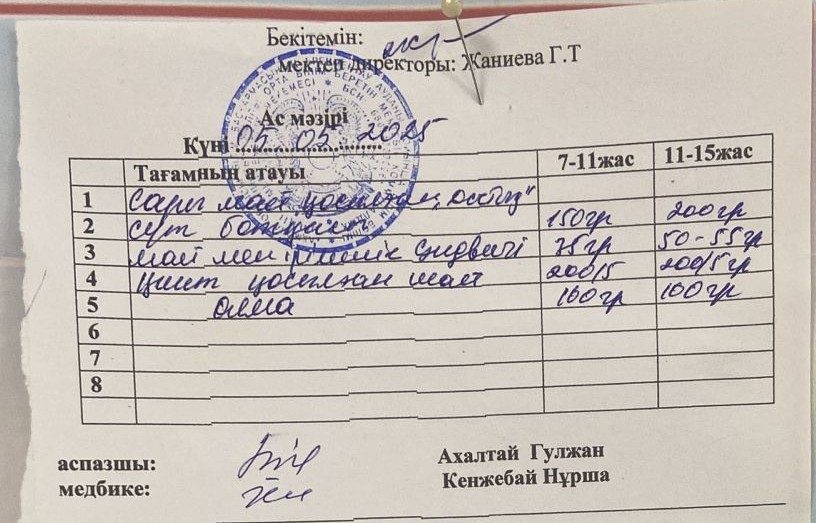 Бекітемін:
мектеп директоры: Жаниева Г.Т
Ас мәзірі
Күні 05. 05. 2025
Тағамның атауы 7-11жас 11-15жас
1 Сары май қосылған
2 сүт ботқасы 150гр 200гр
3 май мен ірімшік сэндвичі 35гр 50-55гр
4 Қант қосылған шай 200/5 200/5гр
5 алма 100гр 100гр
6
7
8
аспазшы: Ахалтай Гулжан
медбике: Кенжебай Нұрша